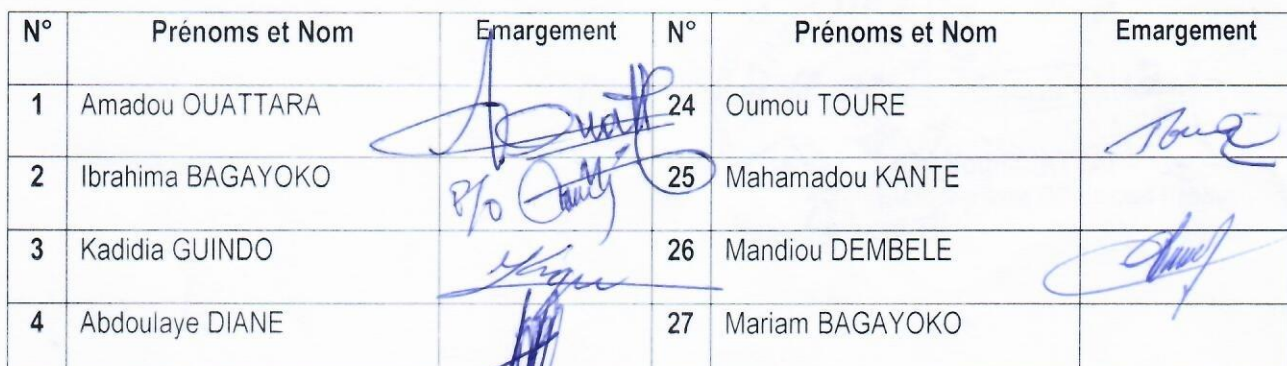 N° Prénoms et Nom Emargement N° Prénoms et Nom Emargement
1 Amadou OUATTARA 24 Oumou TOURE
2 Ibrahima BAGAYOKO P/O 25 Mahamadou KANTE
3 Kadidia GUINDO 26 Mandiou DEMBELE
4 Abdoulaye DIANE 27 Mariam BAGAYOKO